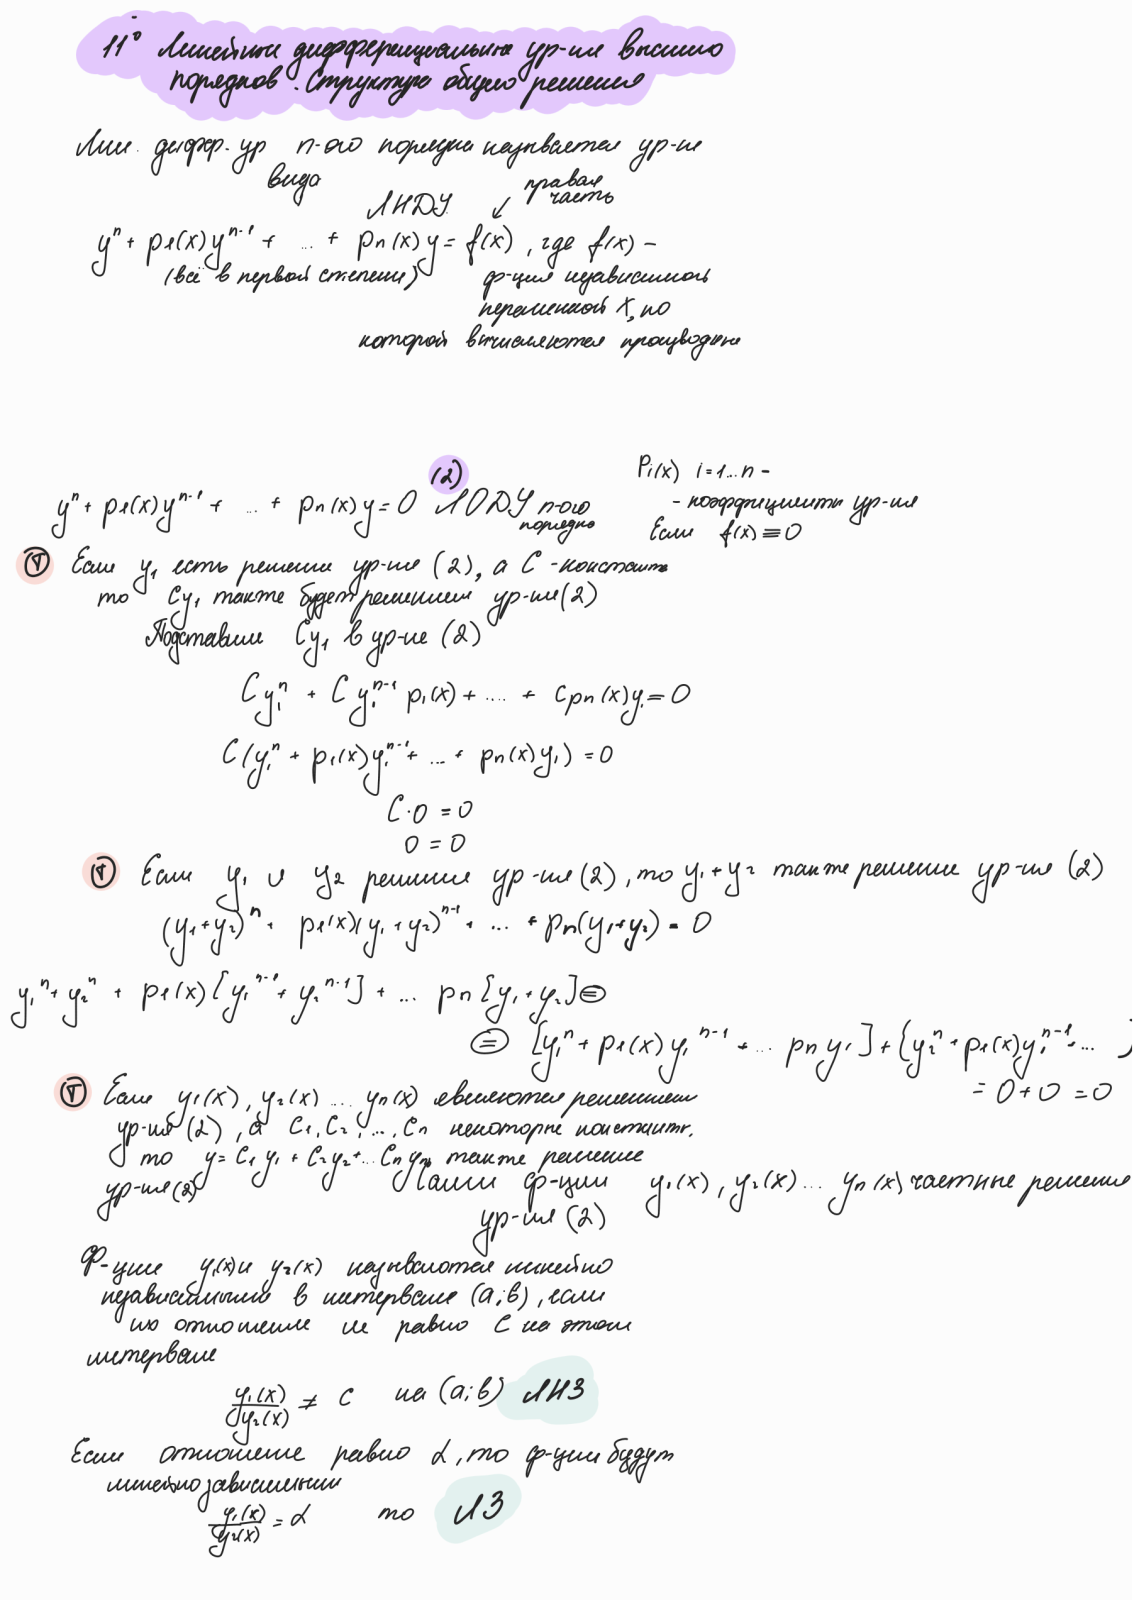 11° Линейные дифференциальные ур-ия высших
порядков. Структура общего решения
Лин. дифер. ур n-ого порядка называется ур-ие
вида
ЛНДУ
правая
часть
yⁿ + p₁(x)yⁿ⁻¹ + ... + pₙ(x)y = f(x), где f(x) –
(всё в первой степени)
ф-ция независимой
переменной x, по
которой вычисляются производные
(2)
yⁿ + p₁(x)yⁿ⁻¹ + ... + pₙ(x)y = 0 ЛОДУ n-ого
порядка
Pᵢ(x) i=1...n -
- коэффициенты ур-ия
Если f(x) ≡ 0
Ⓣ Если y₁ есть решение ур-ия (2), а C - константа
то Cy₁ также будет решением ур-ия (2)
Подставим Cy₁ в ур-ие (2)
Cy₁ⁿ + Cy₁ⁿ⁻¹ p₁(x) + .... + Cpₙ(x)y₁ = 0
C(y₁ⁿ + p₁(x)y₁ⁿ⁻¹ + ... + pₙ(x)y₁) = 0
C·0 = 0
0 = 0
Ⓣ Если y₁ и y₂ решения ур-ия (2), то y₁+y₂ также решение ур-ия (2)
(y₁+y₂)ⁿ + p₁(x)(y₁+y₂)ⁿ⁻¹ + ... + pₙ(y₁+y₂) = 0
y₁ⁿ + y₂ⁿ + p₁(x)[y₁ⁿ⁻¹ + y₂ⁿ⁻¹] + ... pₙ[y₁+y₂] ⊜
⊜ [y₁ⁿ + p₁(x)y₁ⁿ⁻¹ + ... pₙy₁] + [y₂ⁿ + p₁(x)y₂ⁿ⁻¹ + ... ]
= 0+0 = 0
Ⓣ Если y₁(x), y₂(x) ... yₙ(x) являются решением
ур-ия (2), а C₁, C₂, ..., Cₙ некоторые константы,
то y = C₁y₁ + C₂y₂ + ... Cₙyₙ, также решение
ур-ия (2)
Сами ф-ции y₁(x), y₂(x) ... yₙ(x) частные решения
ур-ия (2)
Ф-ции y₁(x) и y₂(x) называются линейно
независимыми в интервале (a;b), если
их отношение не равно C на этом
интервале
y₁(x)/y₂(x) ≠ C на (a;b) ЛНЗ
Если отношение равно α, то ф-ции будут
линейно зависимыми
y₁(x)/y₂(x) = α то ЛЗ